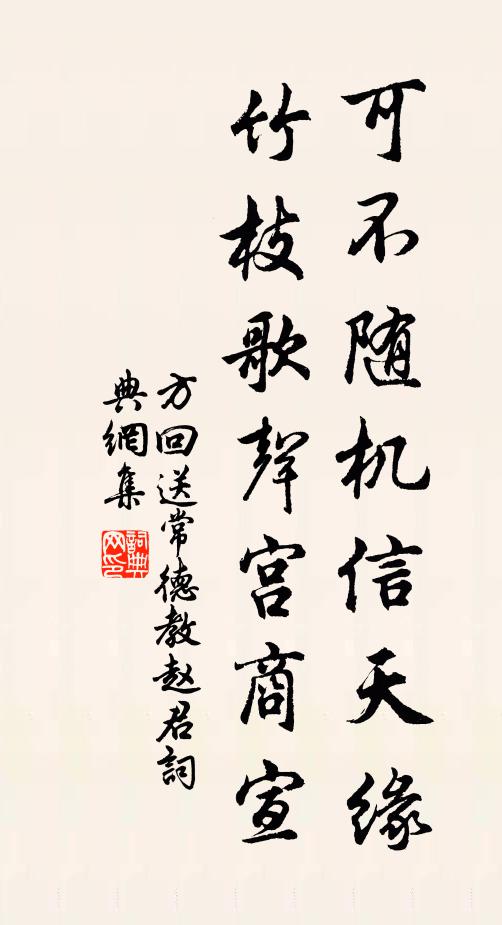 可不随机信天缘
竹枝歌聲宫商宣
方回送常德教赵君詞
典網集
詞典
网印